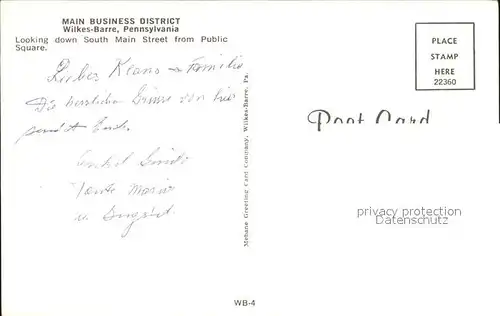 MAIN BUSINESS DISTRICT
Wilkes-Barre, Pennsylvania
Looking down South Main Street from Public
Square.
Lieber Klaus u Familie
Die herzlichen Grüsse von hier
sendet Euch
Onkel Guido
Tante Marie
u. Ingrid.
Mebane Greeting Card Company, Wilkes-Barre, Pa.
PLACE
STAMP
HERE
22360
Post Card
privacy protection
Datenschutz
WB-4